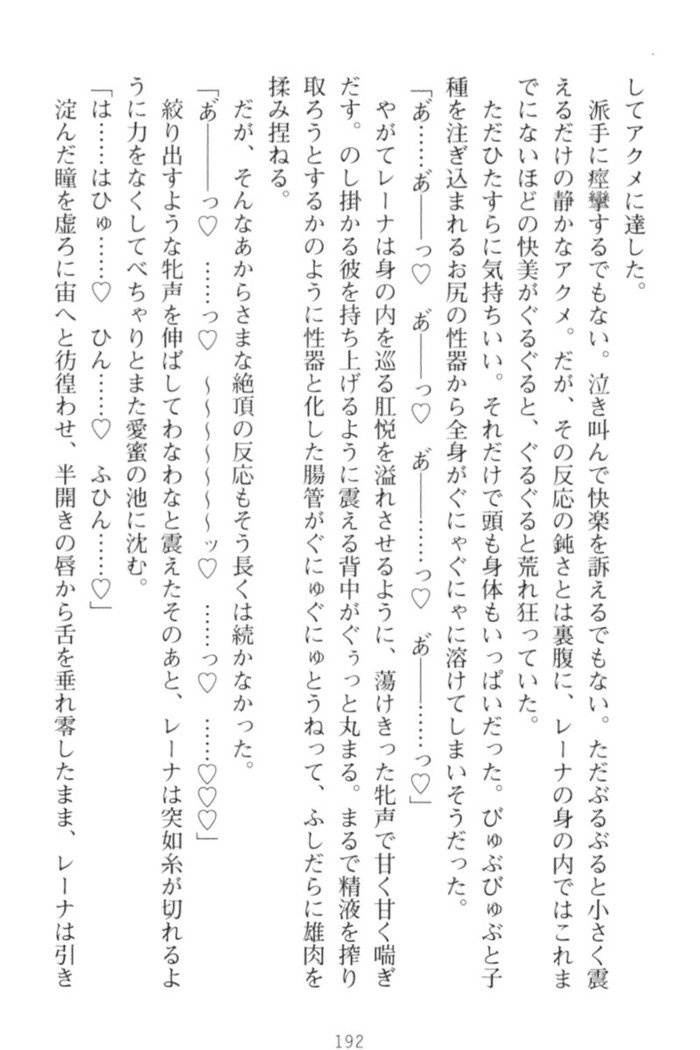 してアクメに達した。
　派手に痙攣するでもない。泣き叫んで快楽を訴えるでもない。ただぶるぶると小さく震
えるだけの静かなアクメ。だが、その反応の鈍さとは裏腹に、レーナの身の内ではこれま
でにないほどの快美がぐるぐると、ぐるぐると荒れ狂っていた。
　ただひたすらに気持ちいい。それだけで頭も身体もいっぱいだった。びゅぶびゅぶと子
種を注ぎ込まれるお尻の性器から全身がぐにゃぐにゃに溶けてしまいそうだった。
「あ゙……あ゙――っ♡　あ゙――っ♡　あ゙――……っ♡　あ゙――……っ♡」
　やがてレーナは身の内を巡る肛悦を溢れさせるように、蕩けきった牝声で甘く甘く喘ぎ
だす。のし掛かる彼を持ち上げるように震える背中がぐぅっと丸まる。まるで精液を搾り
取ろうとするかのように性器と化した腸管がぐにゅぐにゅとうねって、ふしだらに雄肉を
揉み捏ねる。
　だが、そんなあからさまな絶頂の反応もそう長くは続かなかった。
「あ゙――――っ♡　……っ♡　～～～～～～ッ♡　……っ♡　……♡♡♡」
　絞り出すような牝声を伸ばしてわなわなと震えたそのあと、レーナは突如糸が切れるよ
うに力をなくしてべちゃりとまた愛蜜の池に沈む。
「は……はひゅ……♡　ひん……♡　ふひん……♡」
　淀んだ瞳を虚ろに宙へと彷徨わせ、半開きの唇から舌を垂れ零したまま、レーナは引き
192